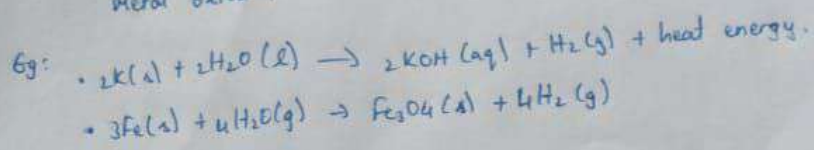 Metal
Eg: • 2K(s) + 2H2O(l) → 2KOH (aq) + H2(g) + heat energy.
• 3Fe(s) + 4H2O(g) → Fe3O4 (s) + 4H2 (g)